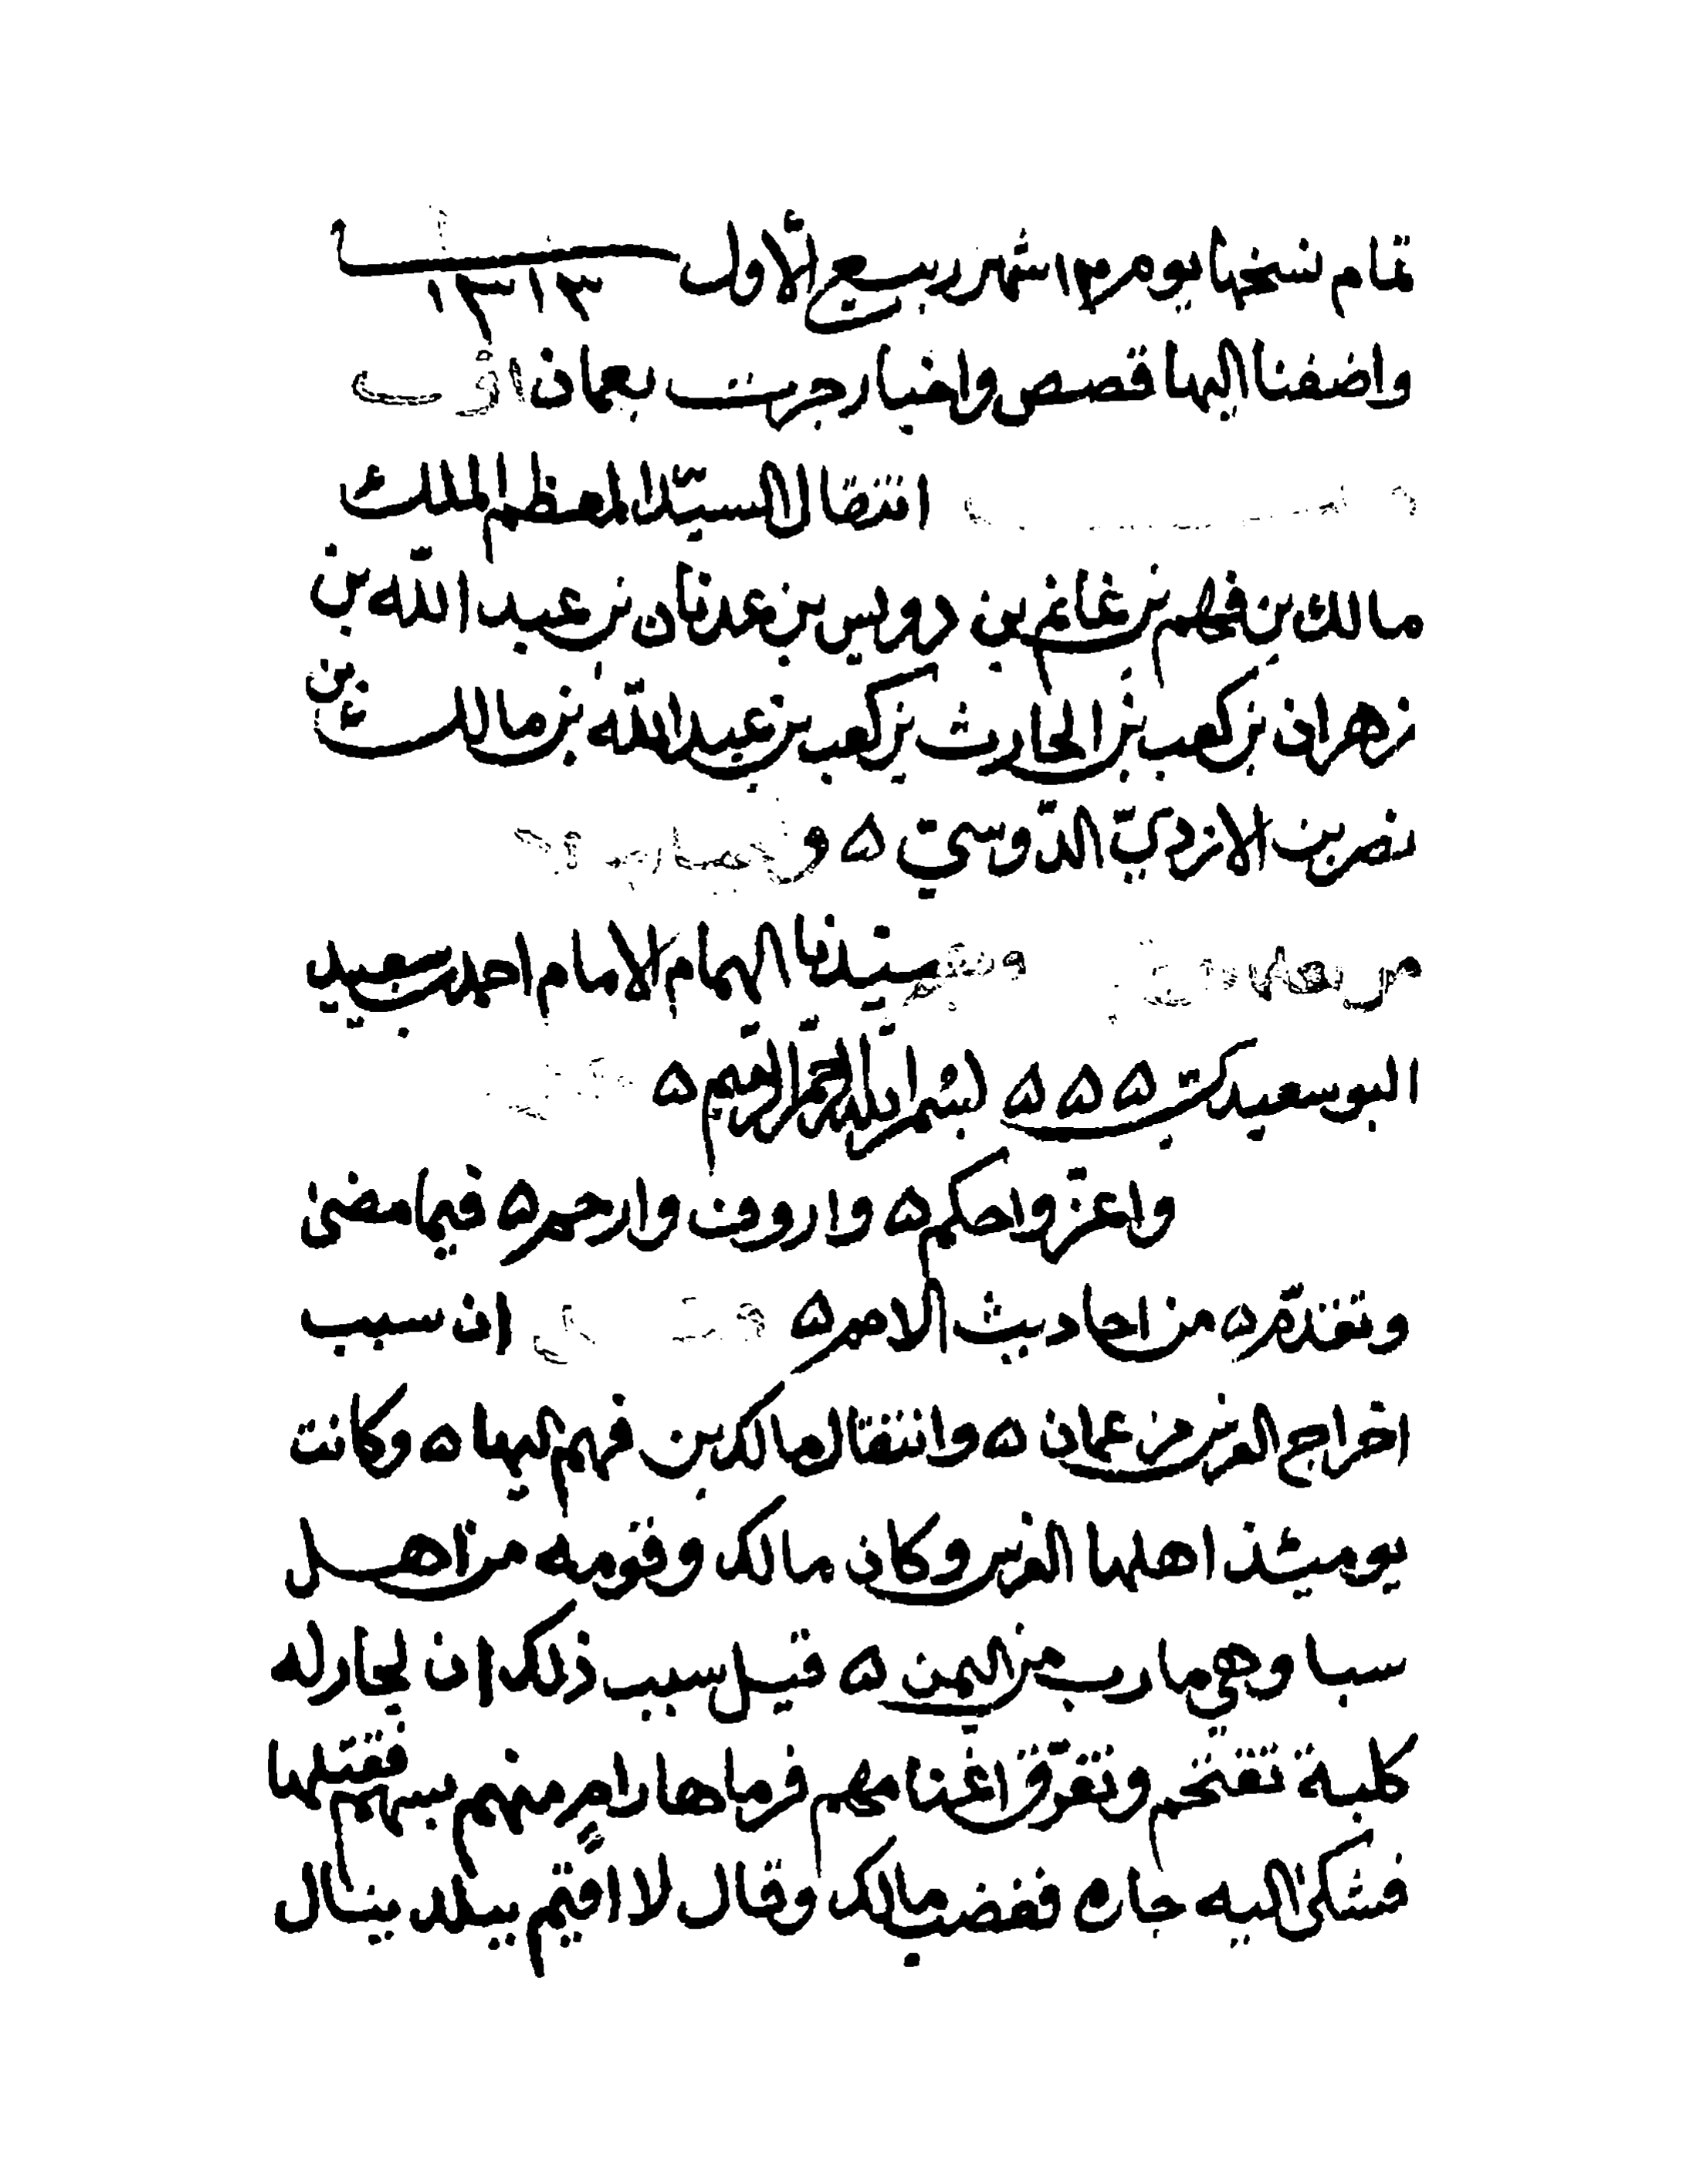 تمام نسخها يوم ١٣ شهر ربيع الأول سنة ١٣١٣
واضفنا اليها قصص واخبار جرت بعمان
انتقال السيّد المعظم الملك
مالك بن فهم بن غانم بن دويس بن عدنان بن عبد اللّه بن
زهران بن كعب بن الحارث بن كعب بن عبد اللّه بن مالك بن
نصر بن الازديّ الدّوسيّ ۵ و
من سيّدنا الهمام الامام احمد بن سعيد
البوسعيدي ۵ ۵ ۵ بسم اللّه الرحمن الرحيم ۵
واعز واحكم ۵ واروف وارحم ۵ فيما مضى
وتقدّم ۵ من احاديث الامم ۵ ان سبب
اخراج الفرس من عمان ۵ وانتقال مالك بن فهم اليها ۵ وكانت
يوميئذ اهلها الفرس وكان مالك وقومه من اهل
سبا وهي مارب من اليمن ۵ قيل سبب ذلك ان لجار له
كلبة تقتحم وتفرّق اغنامهم فرماها رامٍ منهم بسهم فقتلها
فشكى اليه جاره فغضب مالك وقال لا اقيم ببلد ينال